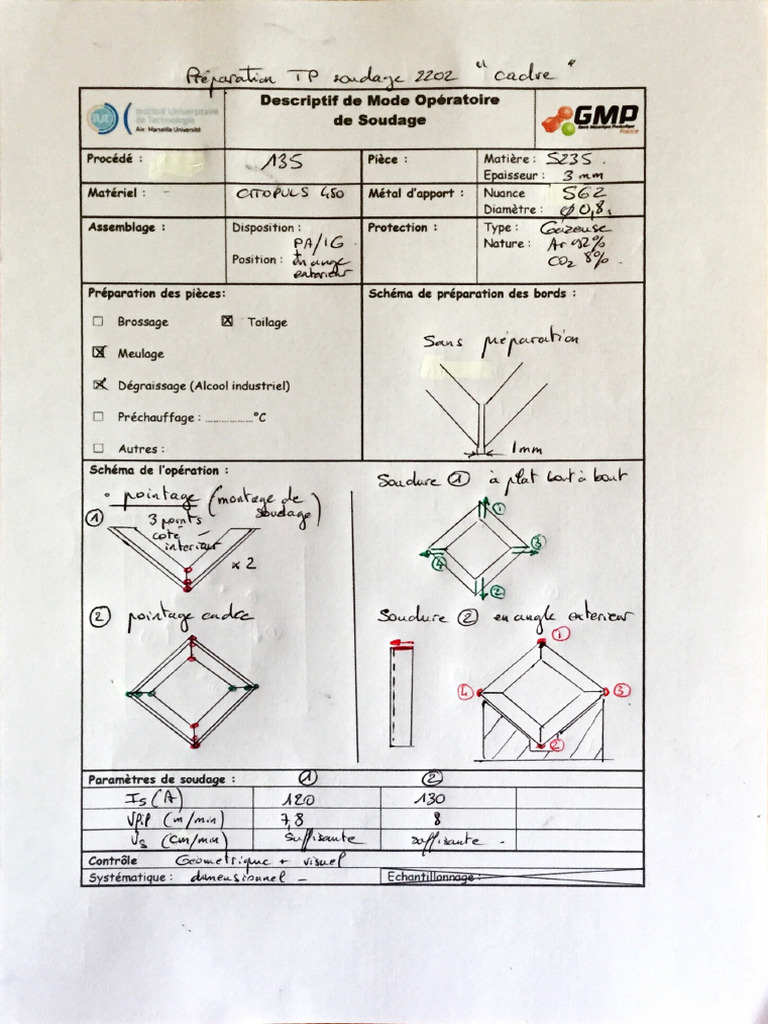 Préparation TP soudage 2202 "cadre"
Institut Universitaire
de Technologie
Aix Marseille Université
Descriptif de Mode Opératoire
de Soudage
GMP
Génie Mécanique Productique
France
Procédé :
135
Pièce :
Matière : S235.
Epaisseur : 3 mm
Matériel : -
CITOPULS 450
Métal d'apport :
Nuance SG2
Diamètre : Ø 0,8.
Assemblage :
Disposition :
PA/1G
+
Position : en angle
exterieur
Protection :
Type : Gazeuse
Nature : Ar 92%
CO2 8%.
Préparation des pièces:
☐ Brossage ☒ Toilage
☒ Meulage
☒ Dégraissage (Alcool industriel)
☐ Préchauffage : ..................°C
☐ Autres :
Schéma de préparation des bords :
Sans préparation
1mm
Schéma de l'opération :
• pointage (montage de
soudage)
① 3 points
coté
interieur
x 2
② pointage cadre
Soudure ① à plat bout à bout
①
③
④
②
Soudure ② en angle exterieur
①
④ ③
②
Paramètres de soudage : ① ②
Is (A) 120 130
Vfil (m/min) 7,8 8
Vs (cm/min) suffisante suffisante.
Contrôle Géometrique + visuel
Systématique : dimensionnel -
Echantillonnage :